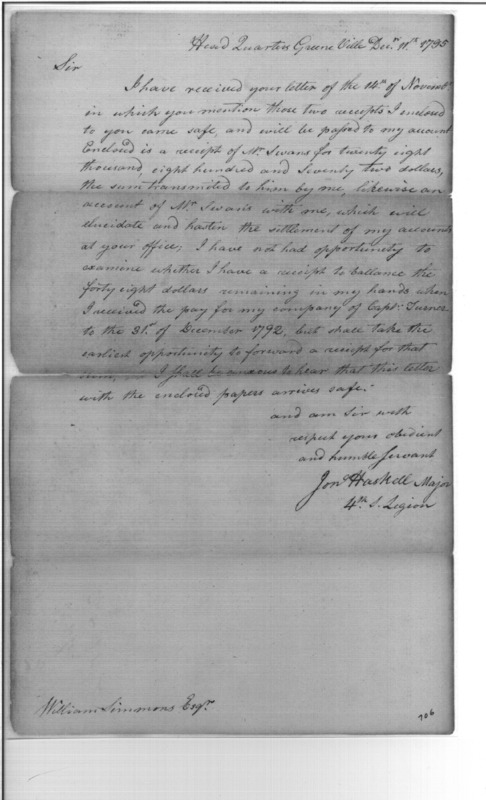 Head Quarters Greene Ville Decr. 11th 1795
Sir
I have received your letter of the 14th. of Novembr.
in which you mention those two receipts I enclosed
to you came safe, and will be passed to my account
Enclosed is a receipt of Mr. Swans for twenty eight
thousand, eight hundred and Seventy two dollars,
the sum transmitted to him by me, likewise an
account of Mr. Swans with me, which will
elucidate and hasten the settlement of my accounts
at your office; I have not had opportunity to
examine whether I have a receipt to ballance the
forty eight dollars remaining in my hands when
I received the pay for my company of Capt. Turner
to the 31st. of December 1792, but shall take the
earliest opportunity to forward a receipt for that
sum, I shall be anxious to hear that this letter
with the enclosed papers arrives safe.
and am Sir with
respect your obedient
and humble Servant
Jona Haskell Major
4th S. Legion
William Simmons Esqr.
706